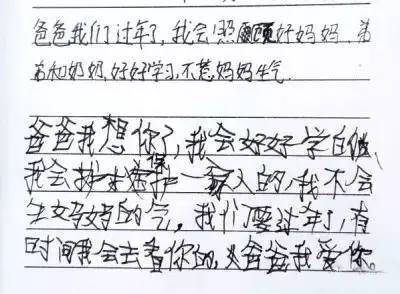 爸爸我们过年了,我会照顾好妈妈、弟
弟和奶奶,好好学习,不惹妈妈生气。
爸爸我想你了,我会好好学的,
我会保护一家人的,我不会
生妈妈的气。我们要过年了,有
时间我会去看你的,爸爸我爱你。